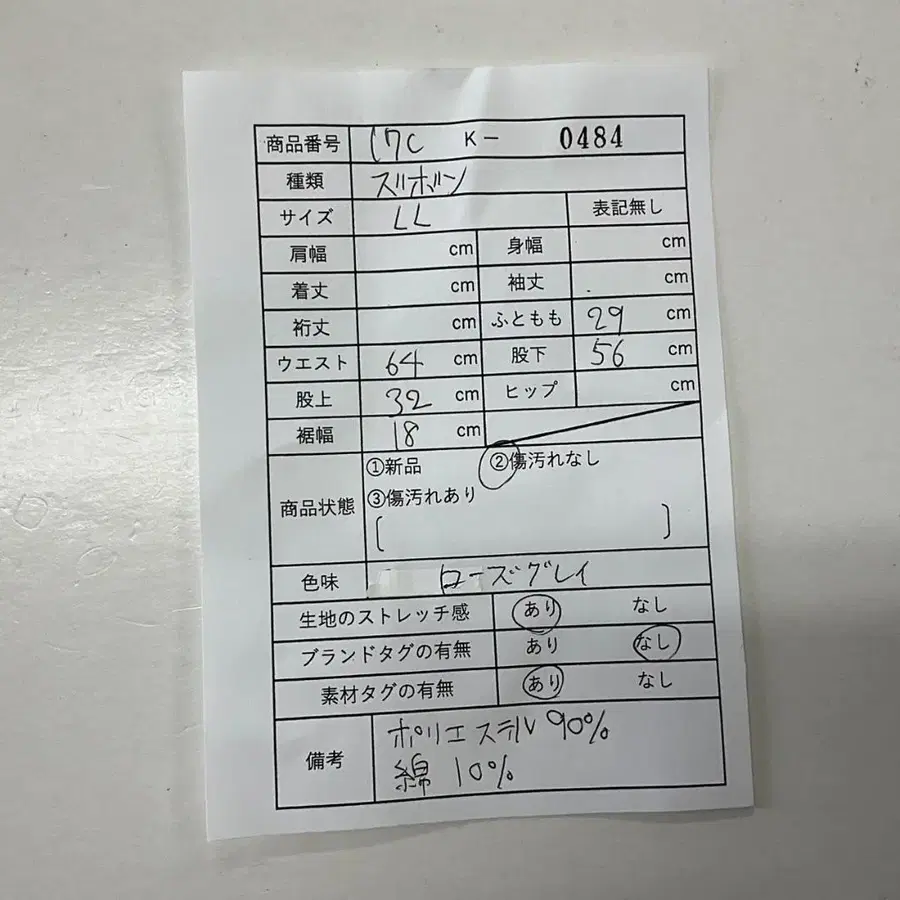 商品番号 17C K- 0484
種類 ズボン
サイズ LL 表記無し
肩幅 cm 身幅 cm
着丈 cm 袖丈 cm
裄丈 cm ふともも 29 cm
ウエスト 64 cm 股下 56 cm
股上 32 cm ヒップ cm
裾幅 18 cm
商品状態 ①新品 ②傷汚れなし
③傷汚れあり
[ ]
色味 ローズグレイ
生地のストレッチ感 あり なし
ブランドタグの有無 あり なし
素材タグの有無 あり なし
備考 ポリエステル 90%
綿 10%